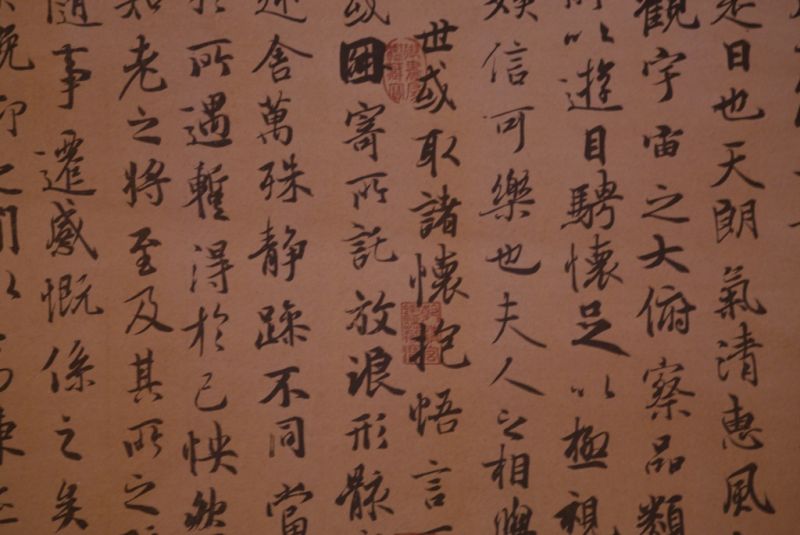 是日也天朗氣清惠風
觀宇宙之大俯察品類
所以遊目騁懷足以極視
娛信可樂也夫人之相與
世或取諸懷抱悟言
或因寄所託放浪形骸
舍萬殊静躁不同當
所遇蹔得於己怏然
知老之將至及其所之
隨事遷感慨係之矣
俛仰之間以